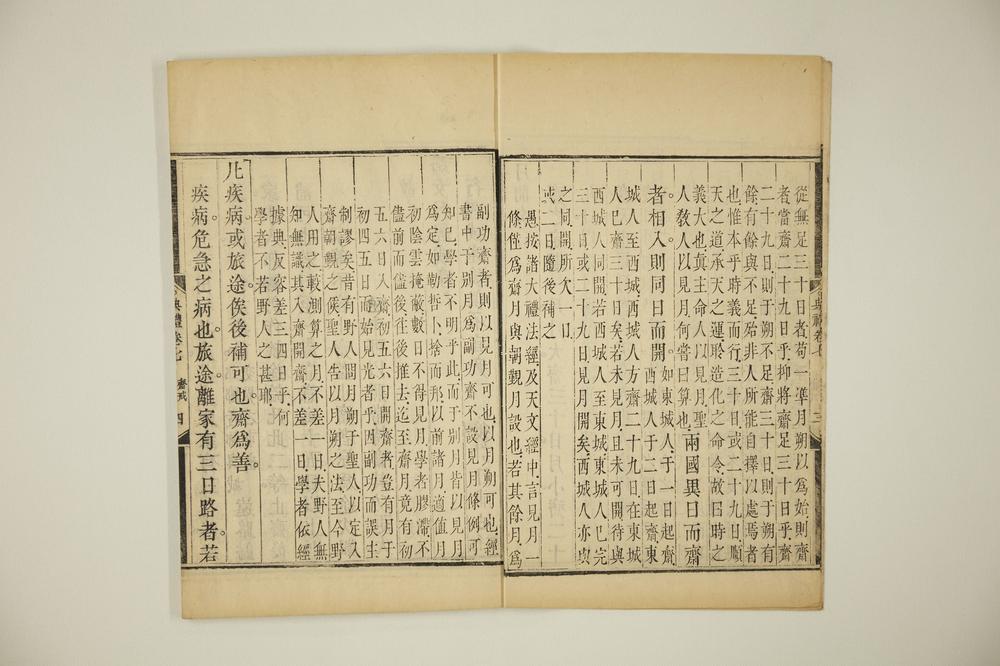 從無足三十日者苟一準月朔以為始則齋
者當齋二十九日乎抑將齋足三十日乎齋
二十九日則于朔不足齋三十日則于朔有
餘有餘與不足始非人所能自擇以處焉者
也惟本乎時義而行三十日或二十九日順
天之道承天之運聆造化之命令故曰時之
義大也真主命人以見月聖
人教人以見月何嘗曰算也兩國異日而齋
者相入則同日而開如東城人于一日起齋
西城人于二日起齋東
城人至西城西城人方齋二十九日在東城
人已齋三十日矣若未見月且未可開待與
西城人同開若西城人至東城東城人已完
三十日或二十九日見月開矣西城人亦與
之同開所欠一日
或二日隨後補之
愚按諸大禮法經及天文經中言見月一
條僅為齋月與朝覲月設也若其餘月為
典禮卷七
三
副功齋者則以見月可也以月朔可也經
書中于別月為副功齋不設見月條例可
知已學者不明乎此而于別月皆以見月
為定如勒哲卜捨而邦以前諸月適值月
初陰雲掩蔽數日不得見月學者膠滯不
儘前而儘後往後推去迄至齋月竟有初
五六日入齋初五六日開齋者豈有月于
初四五日而始見光者乎因副功而誤主
制謬矣昔有野人問月朔于聖人以定入
齋朝覲之候聖人告以月朔之法至今野
人用之較測算之月不差一日夫野人無
知無識其入齋開齋不差一日學者依經
據典反容差三四日乎何
學者不若野人之甚耶
凡疾病或旅途俟後補可也齋為善
疾病危急之病也旅途離家有三日路者若
典禮卷七
齋戒
四